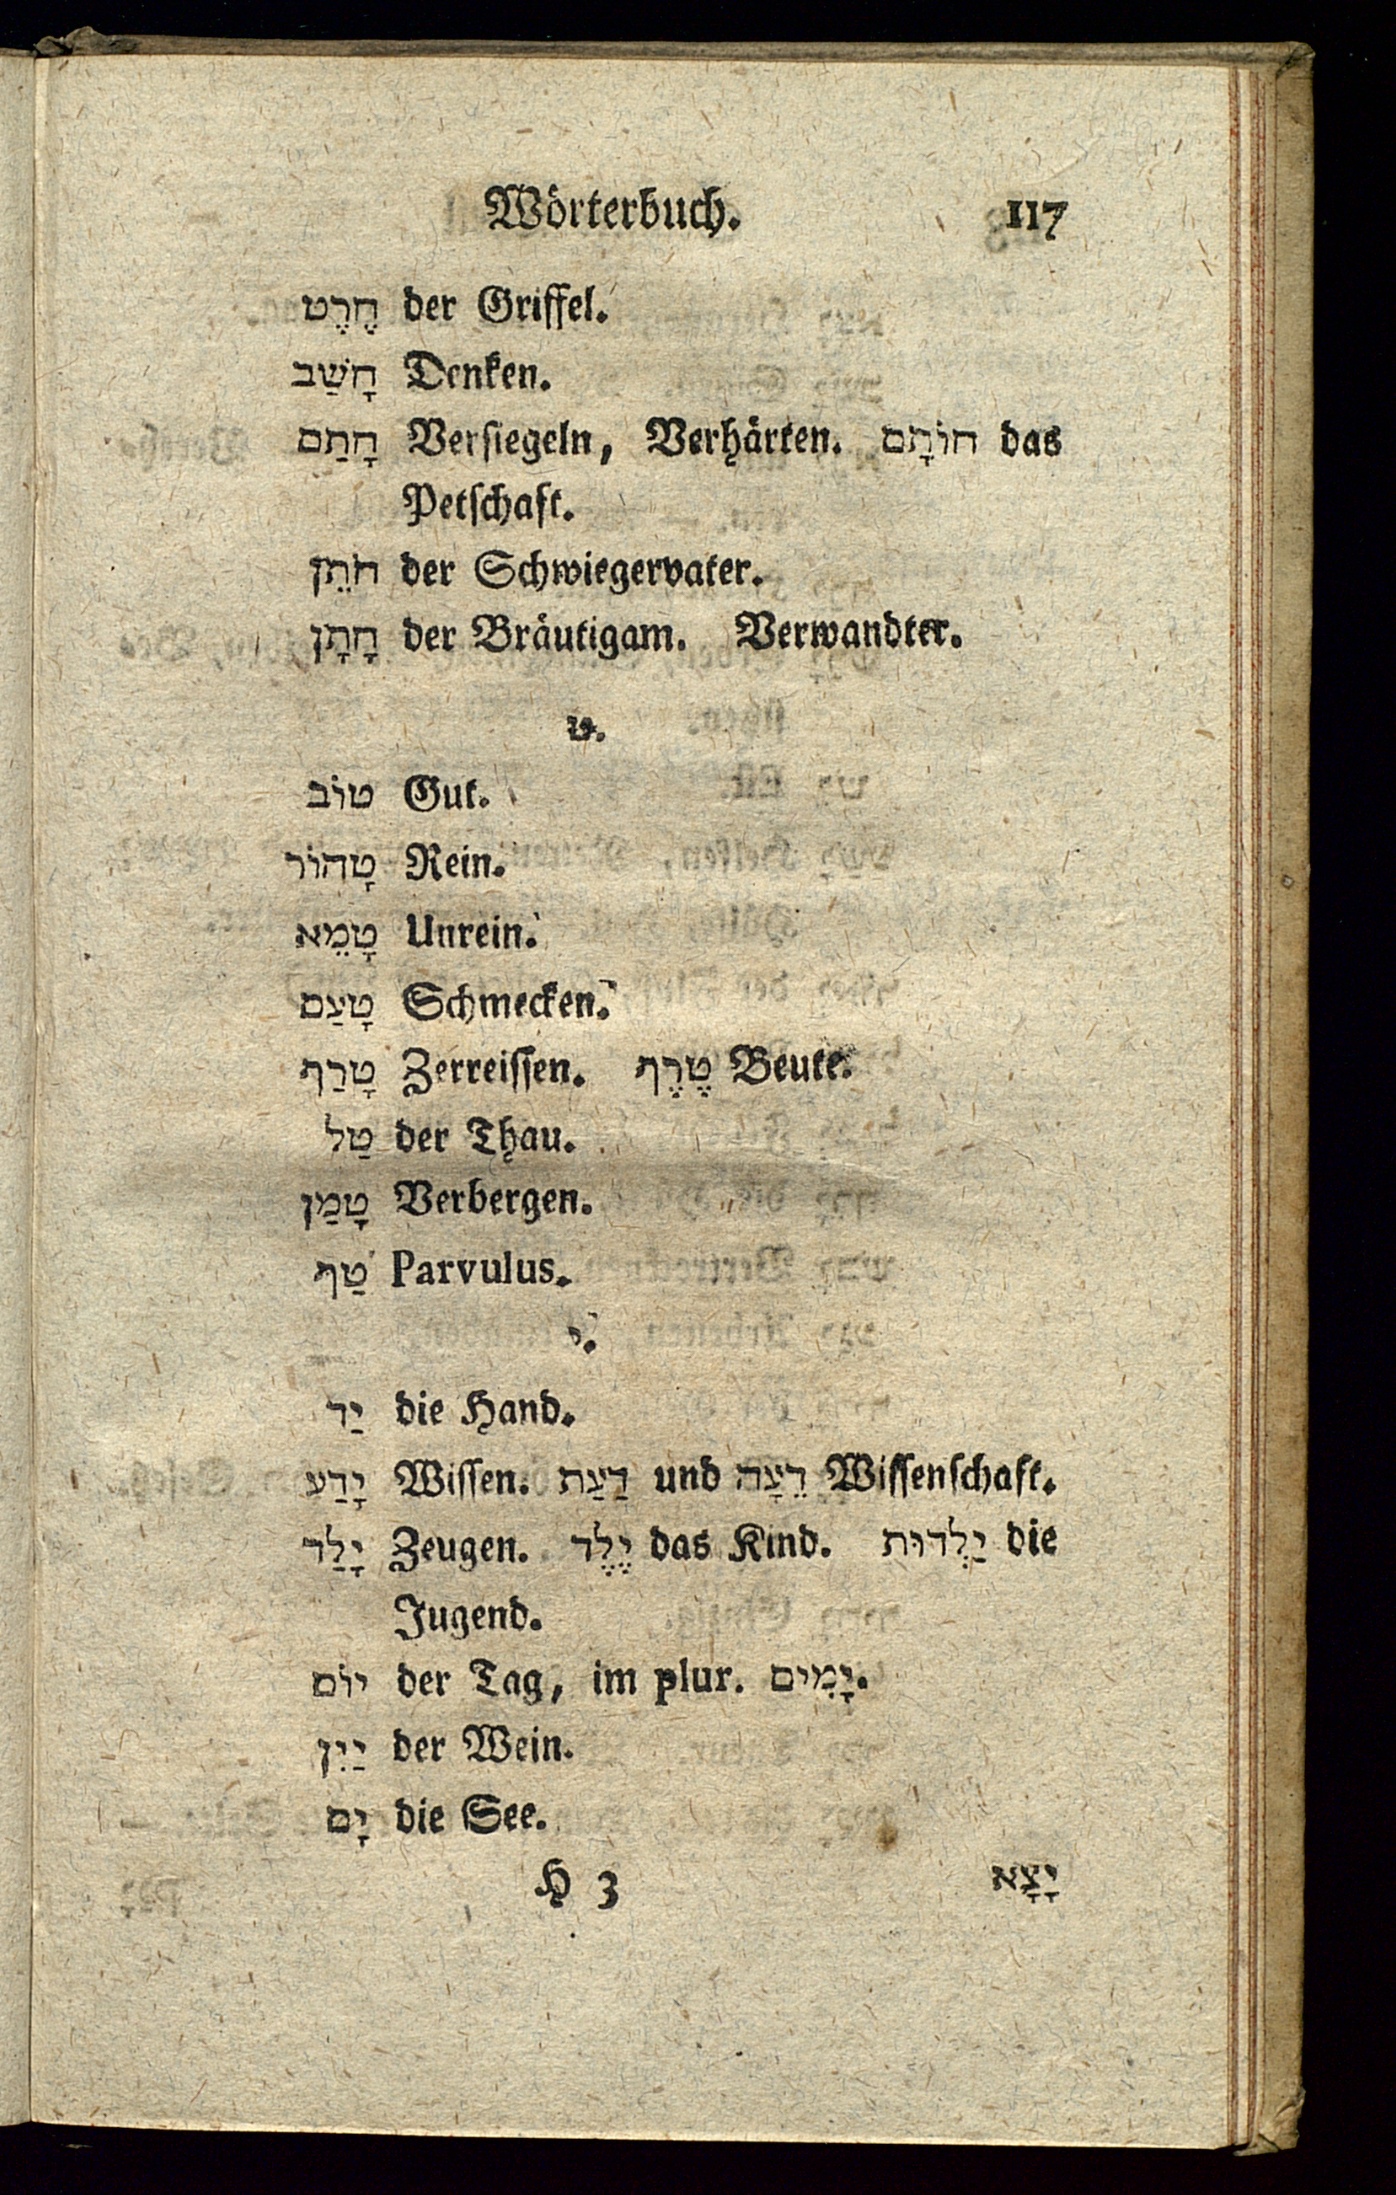 Wörterbuch. 117
חֶרֶט der Griffel.
חָשַׁב Denken.
חָתַם Versiegeln, Verhärten. חוֹתָם das
Petschaft.
חֹתֵן der Schwiegervater.
חָתָן der Bräutigam. Verwandter.
ט.
טוֹב Gut.
טָהוֹר Rein.
טָמֵא Unrein.
טָעַם Schmecken.
טָרַף Zerreissen. טֶרֶף Beute.
טַל der Thau.
טָמַן Verbergen.
טַף Parvulus.
י.
יַד die Hand.
יָדַע Wissen. דַעַת und דֵעָה Wissenschaft.
יָלַד Zeugen. יֶלֶד das Kind. יַלְדוּת die
Jugend.
יוֹם der Tag, im plur. יָמִים.
יַיִן der Wein.
יָם die See.
H 3 יָצָא